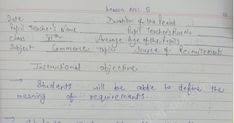 Lesson No. 5
Date Duration of the Period
Pupil Teacher's Name Pupil Teacher's Roll No.
Class XIth Average Age of the Pupils
Subject Commerce Topic Source of Recruitments
Instructional objective
→ Students will be able to define the
meaning of requirements.